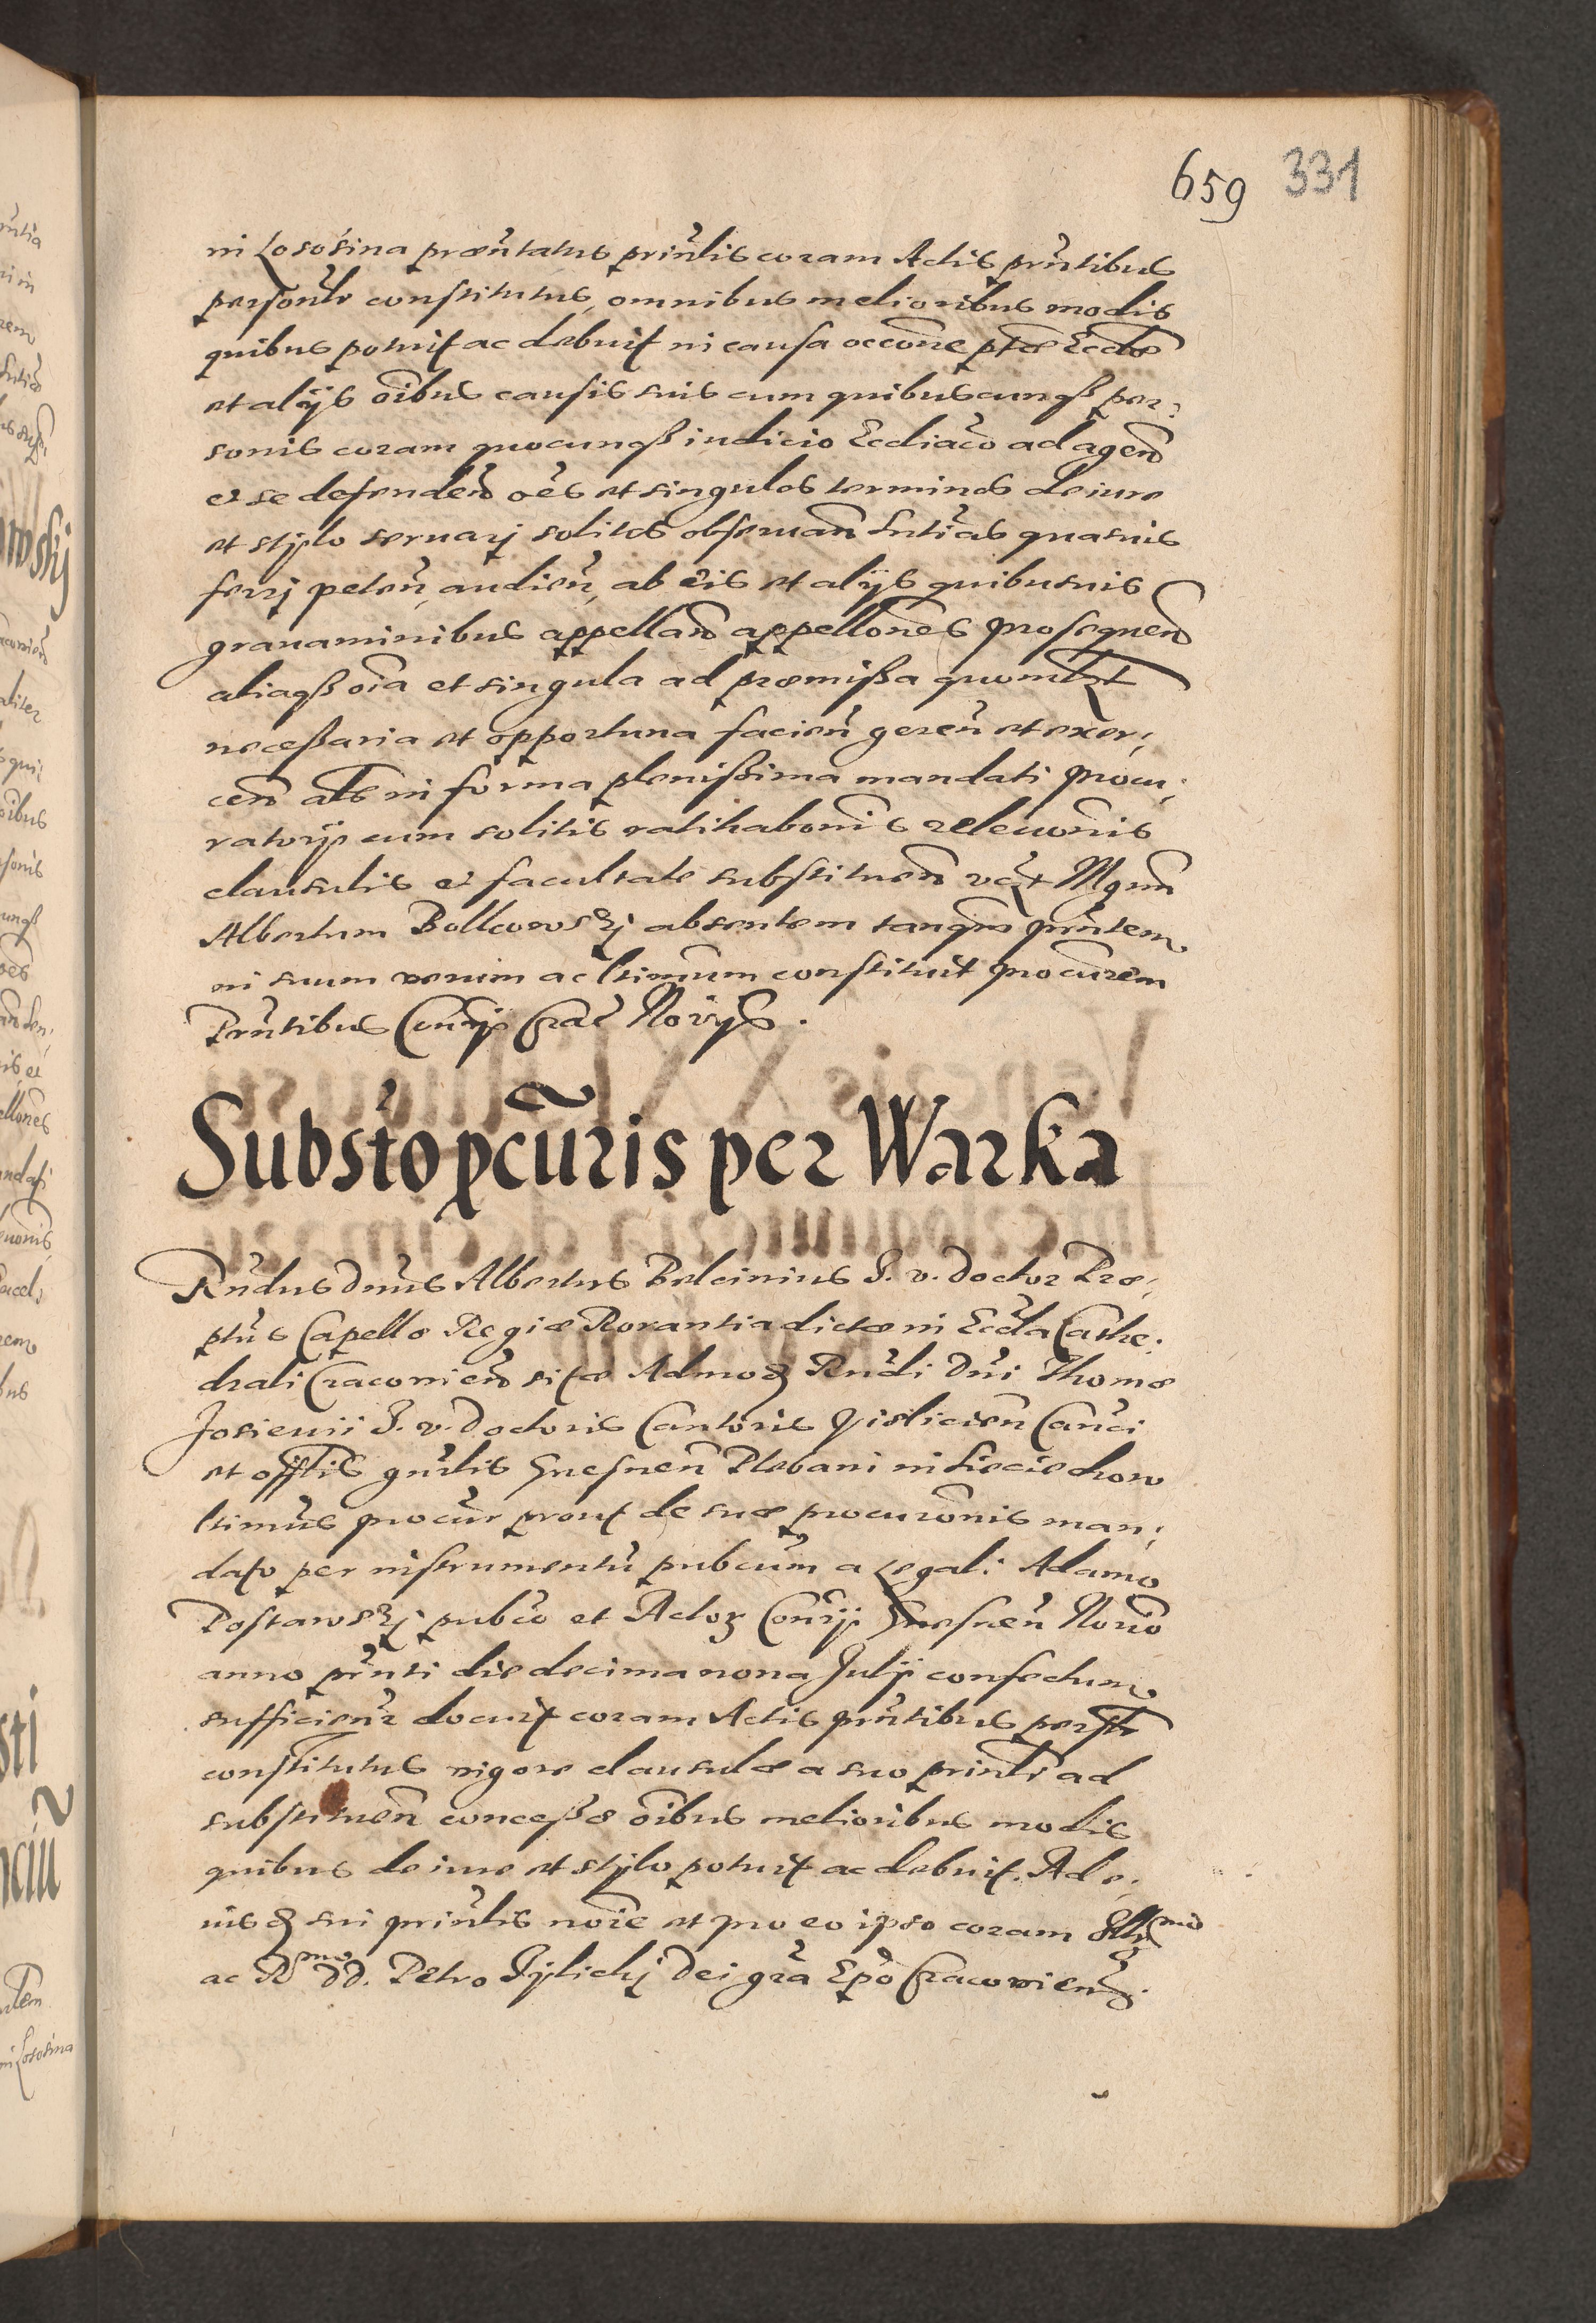 659 331
in Lososina praeñtatus priñlis coram Actis prñtibus
personłr constitutus, omnibus melioribus modis
quibus potuit ac debuit in causa occõne ptae Eccłae
et alijs oĩbus causis suis cum quibuscunqß per:
sonis coram quocunqß iudicio Eccliaco ad agend
et se defendend oẽs et singulos terminos de iure
et stylo seruarj solitos obseruand sntias quasuis
ferrj peteñ, audieñ, ab eis et alijs quibusuis
grauaminibus appelland appellones prosequend
aliaqß oĩa et singula ad praemißa quomłt
neceßaria et opportuna facieñ gereñ et exer:
cend ałs in forma plenißima mandati procu:
ratorij cum solitis ratihabõnis releuõnis
clausulis et facultate substituend Mgrm
Albertum Bollcowskj absentem tanqm prñtem
in suum verum ac ltimum constituit procurem
Prñtibus Connrijs Crac Norijs.
Substo pcũris per Warka
Rñdus dñus Albertus Belcinius J. v. doctor Prae:
ptus Capellae Regiae Rorantia dictae in Eccła Cathe:
drali Cracovień sitae Admod Rñdi Dñi Thomae
Josienii J. v. Doctoris Cantoris Visliciẽn Canci
et offlis gnrlis Gnesneñ Plebani in Sieciechow
ltimus procur prout de suae procurõnis man:
dato per instrumentũ pubcum a Legali Adamo
Postawskj pubco et Actoʒ Connrij Gnesneñ Norio
anno prñti die decima nona Julij confectum
sufficienr docuit coram Actis prñtibus persłr
constitutus vigore clausulae a suo prinłi ad
substituend conceßae oĩbus melioribus modis
quibus de iure et stylo potuit ac debuit. Ade:
us sui priñlis noĩe et pro eo ipso coram Illmo
ac Rmo DD. Petro Tylickj Dei gra Epo Cracovieñ.